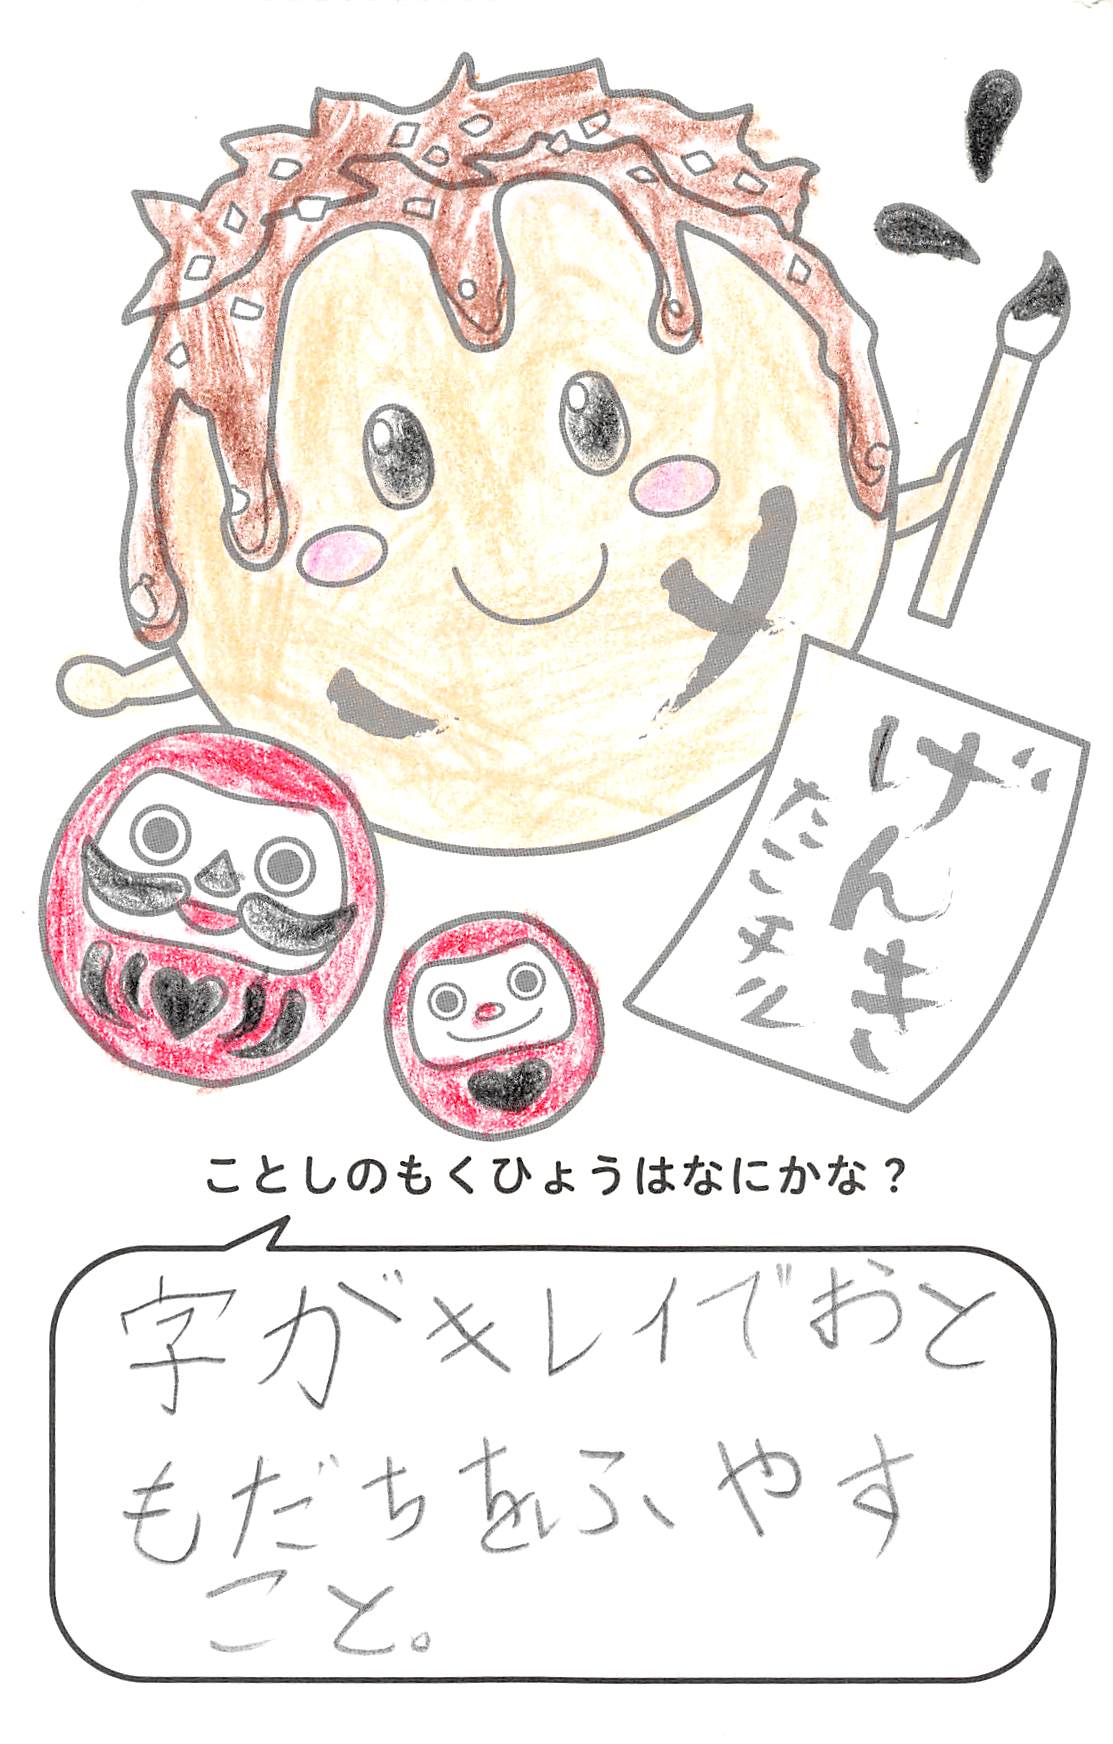 げんき
たこすけ
ことしのもくひょうはなにかな？
字がキレイでおと
もだちをふやす
こと。